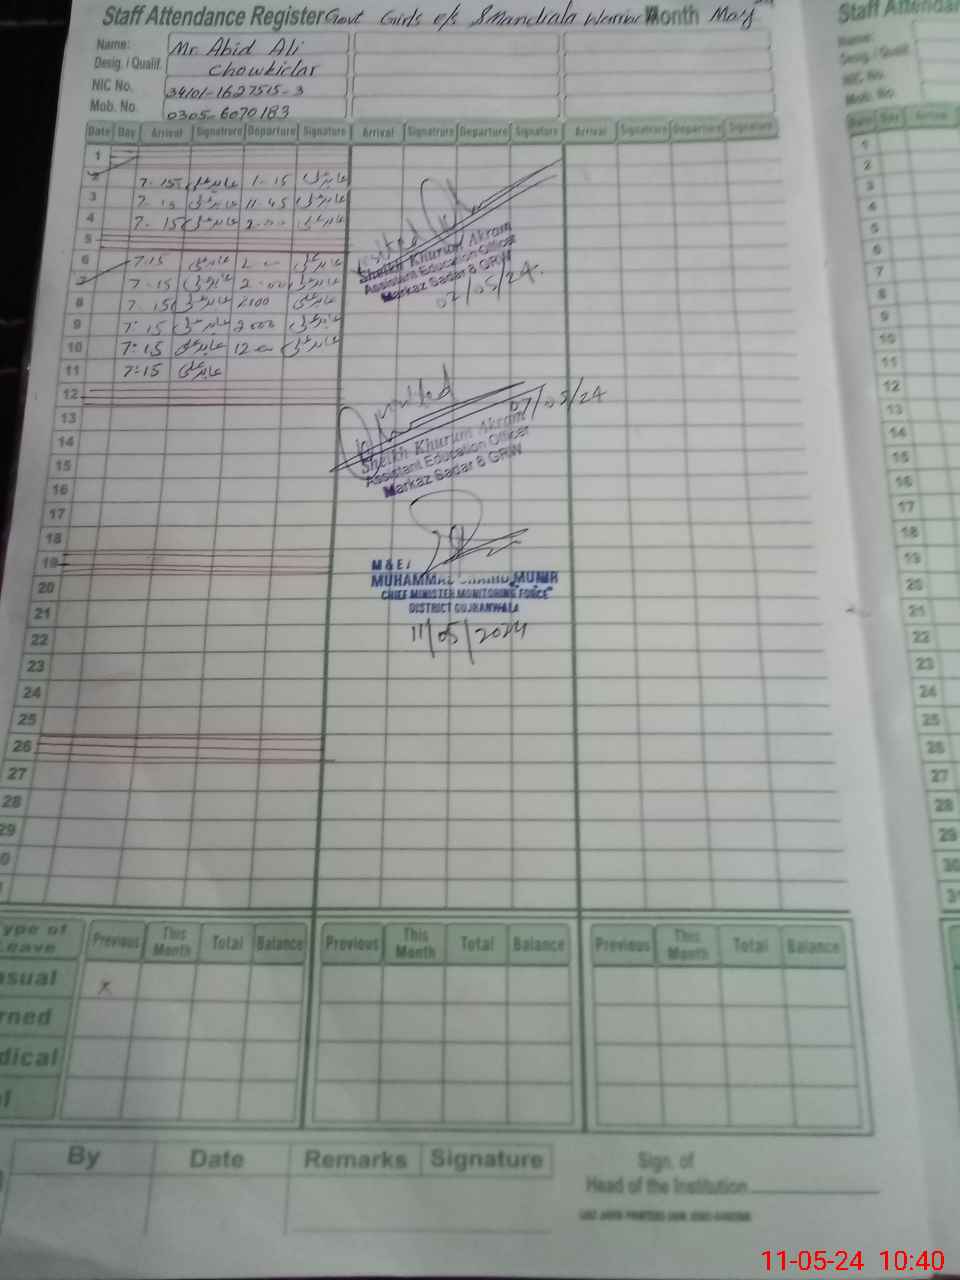 Staff Attendance Register Govt Girls e/s Mandiala Warrich Month May
Name: Mr. Abid Ali
Desig. / Qualif. Chowkidar
NIC No. 34101-1627515-3
Mob. No. 0305-6070183
Date Day Arrival Signatrure Departure Signature Arrival Signatrure Departure Signature Arrival Signatrure Departure Signature
1
2 7-15 عابد علی 1-15 عابد علی
3 7-15 عابد علی 11-45 عابد علی
4 7-15 عابد علی 2-00 عابد علی
5
6 7:15 عابد علی 2-00 عابد علی
7 7-15 عابد علی 2-00 عابد علی
8 7-15 عابد علی 2:00 عابد علی
9 7:15 عابد علی 2:00 عابد علی
10 7:15 عابد علی 12-00 عابد علی
11 7:15 عابد علی
12
13
14
15
16
17
18
19
20
21
22
23
24
25
26
27
28
29
Sheikh Khurum Akram
Assistant Education Officer
Markaz Sadar 8 GRW
02/05/24
07/05/24
Sheikh Khurum Akram
Assistant Education Officer
Markaz Sadar 8 GRW
M & E
MUHAMMAD MUNIR
CHIEF MINISTER MONITORING FORCE
DISTRICT GUJRANWALA
11/05/2024
ype of
eave
Previous This Month Total Balance Previous This Month Total Balance Previous This Month Total Balance
asual x
rned
dical
By Date Remarks Signature
Sign. of
Head of the Institution
Staff Attendan
Name:
Desig. / Qualif.
NIC No.
Mob. No.
Date Day Arrival
1
2
3
4
5
6
7
8
9
10
11
12
13
14
15
16
17
18
19
20
21
22
23
24
25
26
27
28
29
30
11-05-24 10:40